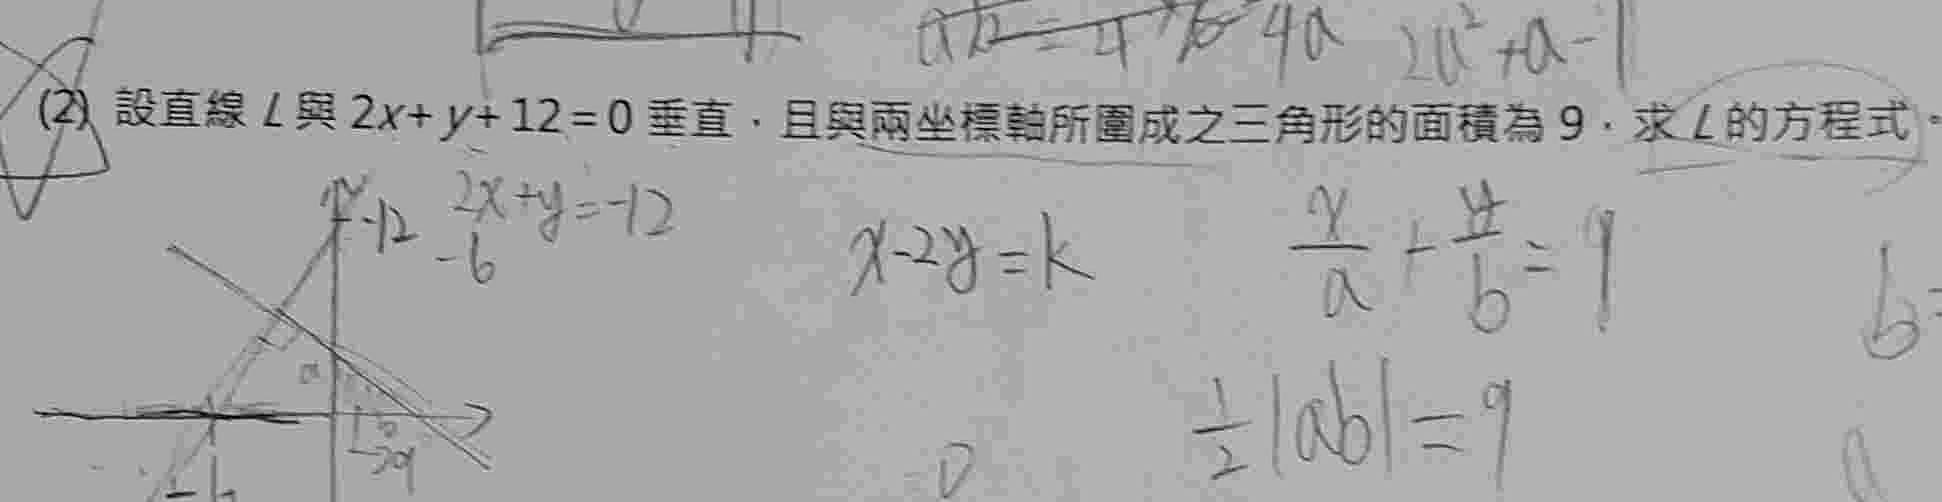 4a 2a²+a-1
(2) 設直線 L 與 2x+y+12=0 垂直，且與兩坐標軸所圍成之三角形的面積為 9，求 L 的方程式。
-12 2x+y=-12
-6
x-2y=k
x/a + y/b = 1
b=
a
1/2|ab|=9